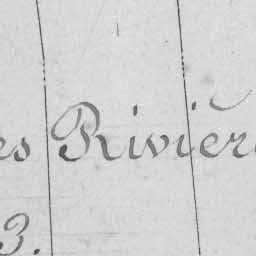 es Rivièr
3.